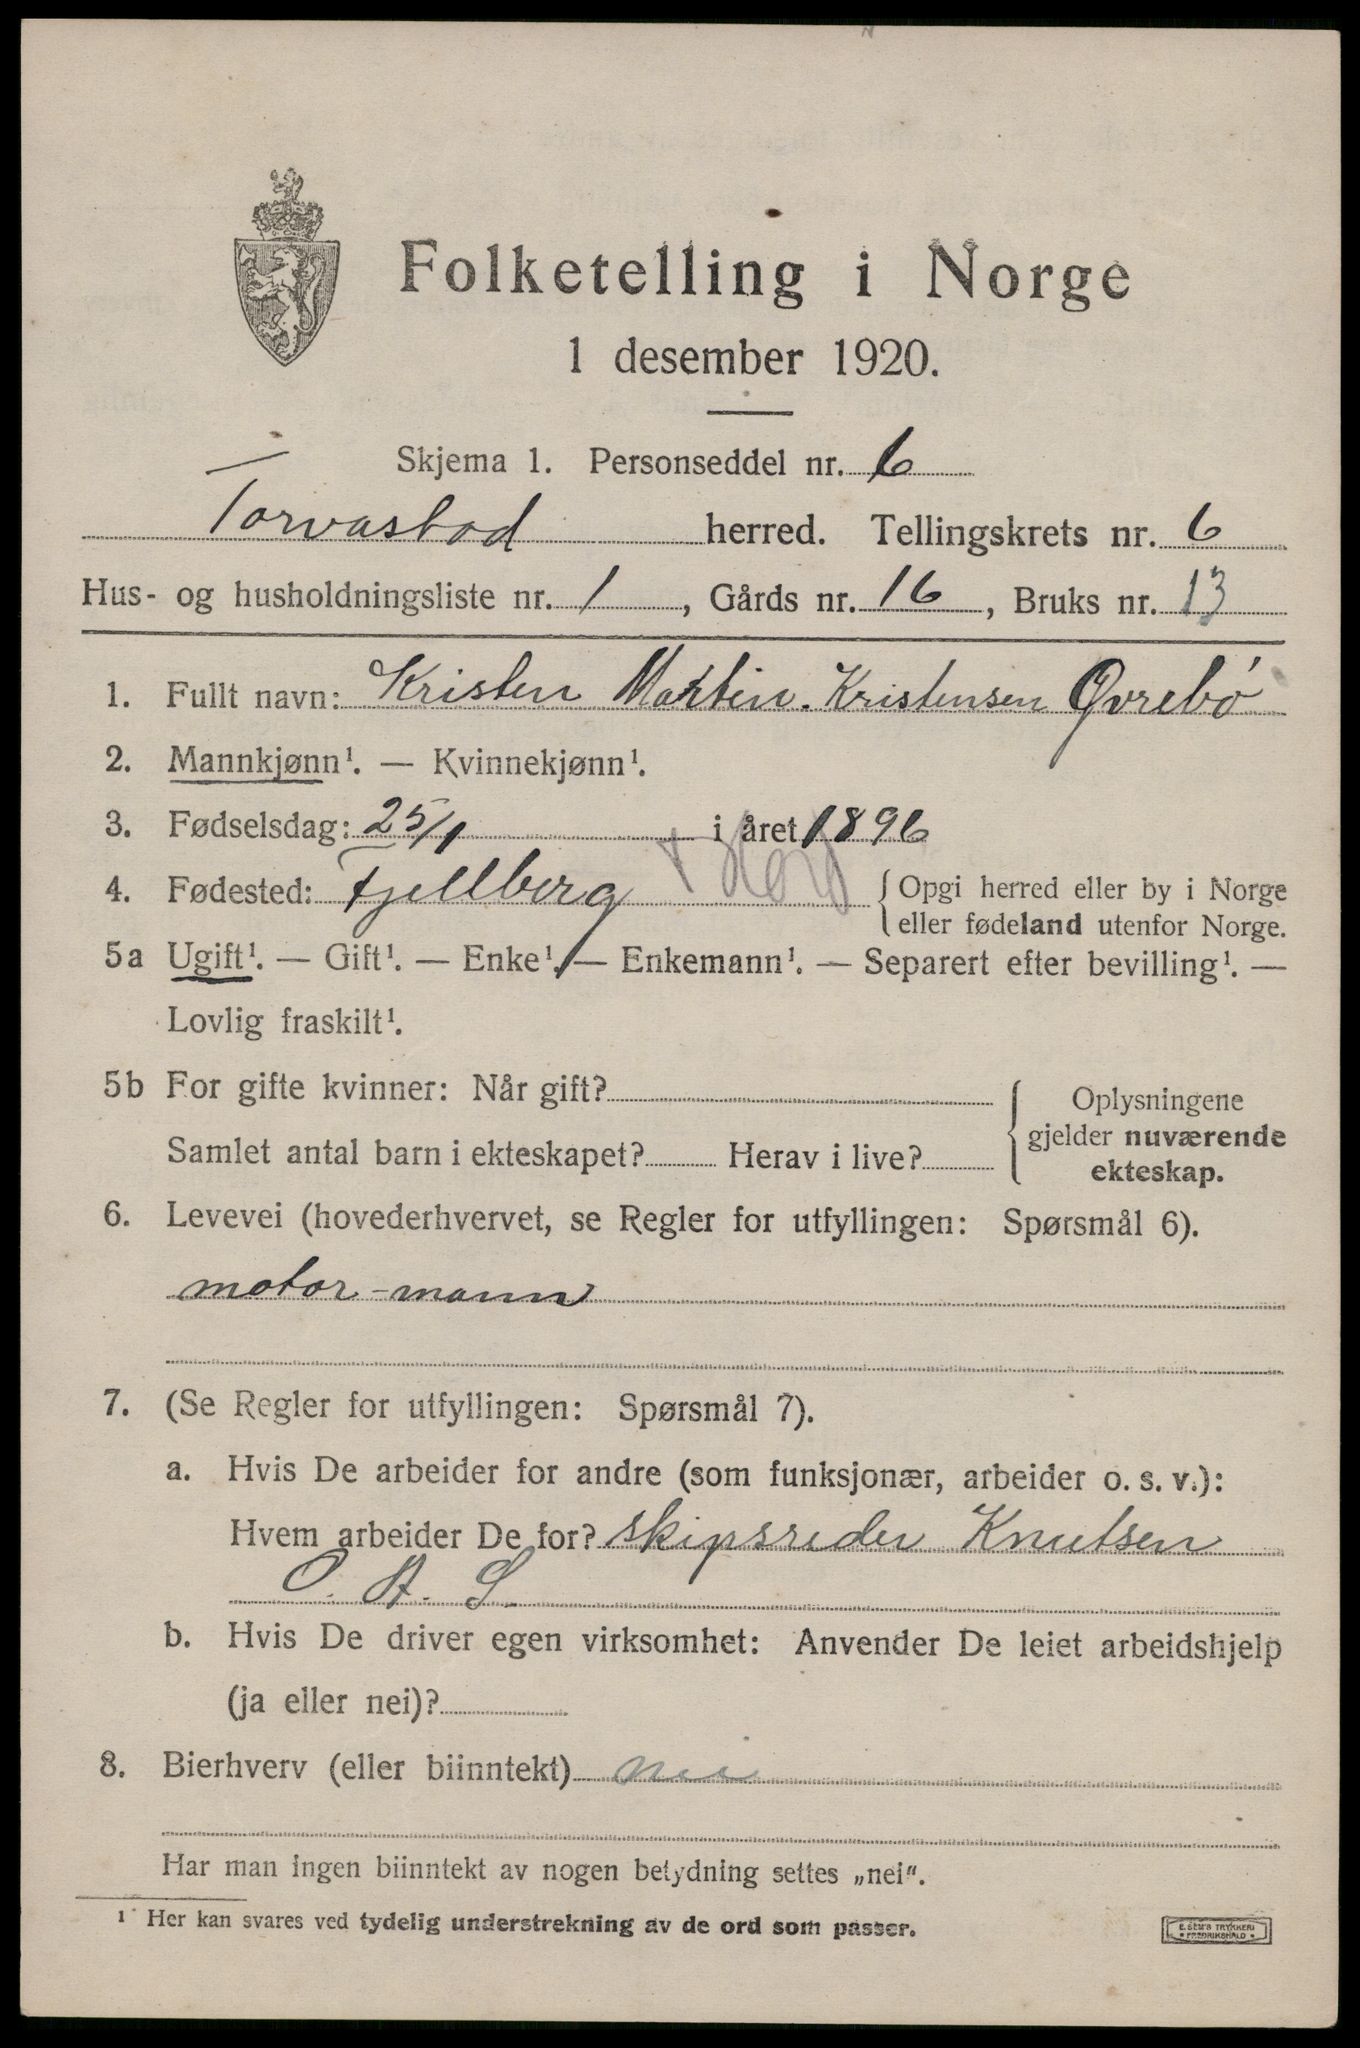 Folketelling i Norge
1 desember 1920.
Skjema 1. Personseddel nr. 6
Torvastad herred. Tellingskrets nr. 6
Hus- og husholdningsliste nr. 1, Gårds nr. 16, Bruks nr. 13
1. Fullt navn: Kristen Martin. Kristensen Øvrebö
2. Mannkjønn¹. — Kvinnekjønn¹.
3. Fødselsdag: 25/1 i året 1896
4. Fødested: Fjellberg + Hord { Opgi herred eller by i Norge
eller fødeland utenfor Norge.
5a Ugift¹. — Gift¹. — Enke¹. — Enkemann¹. — Separert efter bevilling¹. —
Lovlig fraskilt¹.
5b For gifte kvinner: Når gift? { Oplysningene
gjelder nuværende
Samlet antal barn i ekteskapet? Herav i live? ekteskap.
6. Levevei (hovederhvervet, se Regler for utfyllingen: Spørsmål 6).
motor-mann
7. (Se Regler for utfyllingen: Spørsmål 7).
a. Hvis De arbeider for andre (som funksjonær, arbeider o. s. v.):
Hvem arbeider De for? skipsreder Knutsen
O. A. S
b. Hvis De driver egen virksomhet: Anvender De leiet arbeidshjelp
(ja eller nei)?
8. Bierhverv (eller biinntekt) nei
Har man ingen biinntekt av nogen betydning settes „nei“.
¹ Her kan svares ved tydelig understrekning av de ord som passer.
E. SEM'S TRYKKERI
FREDRIKSHALD